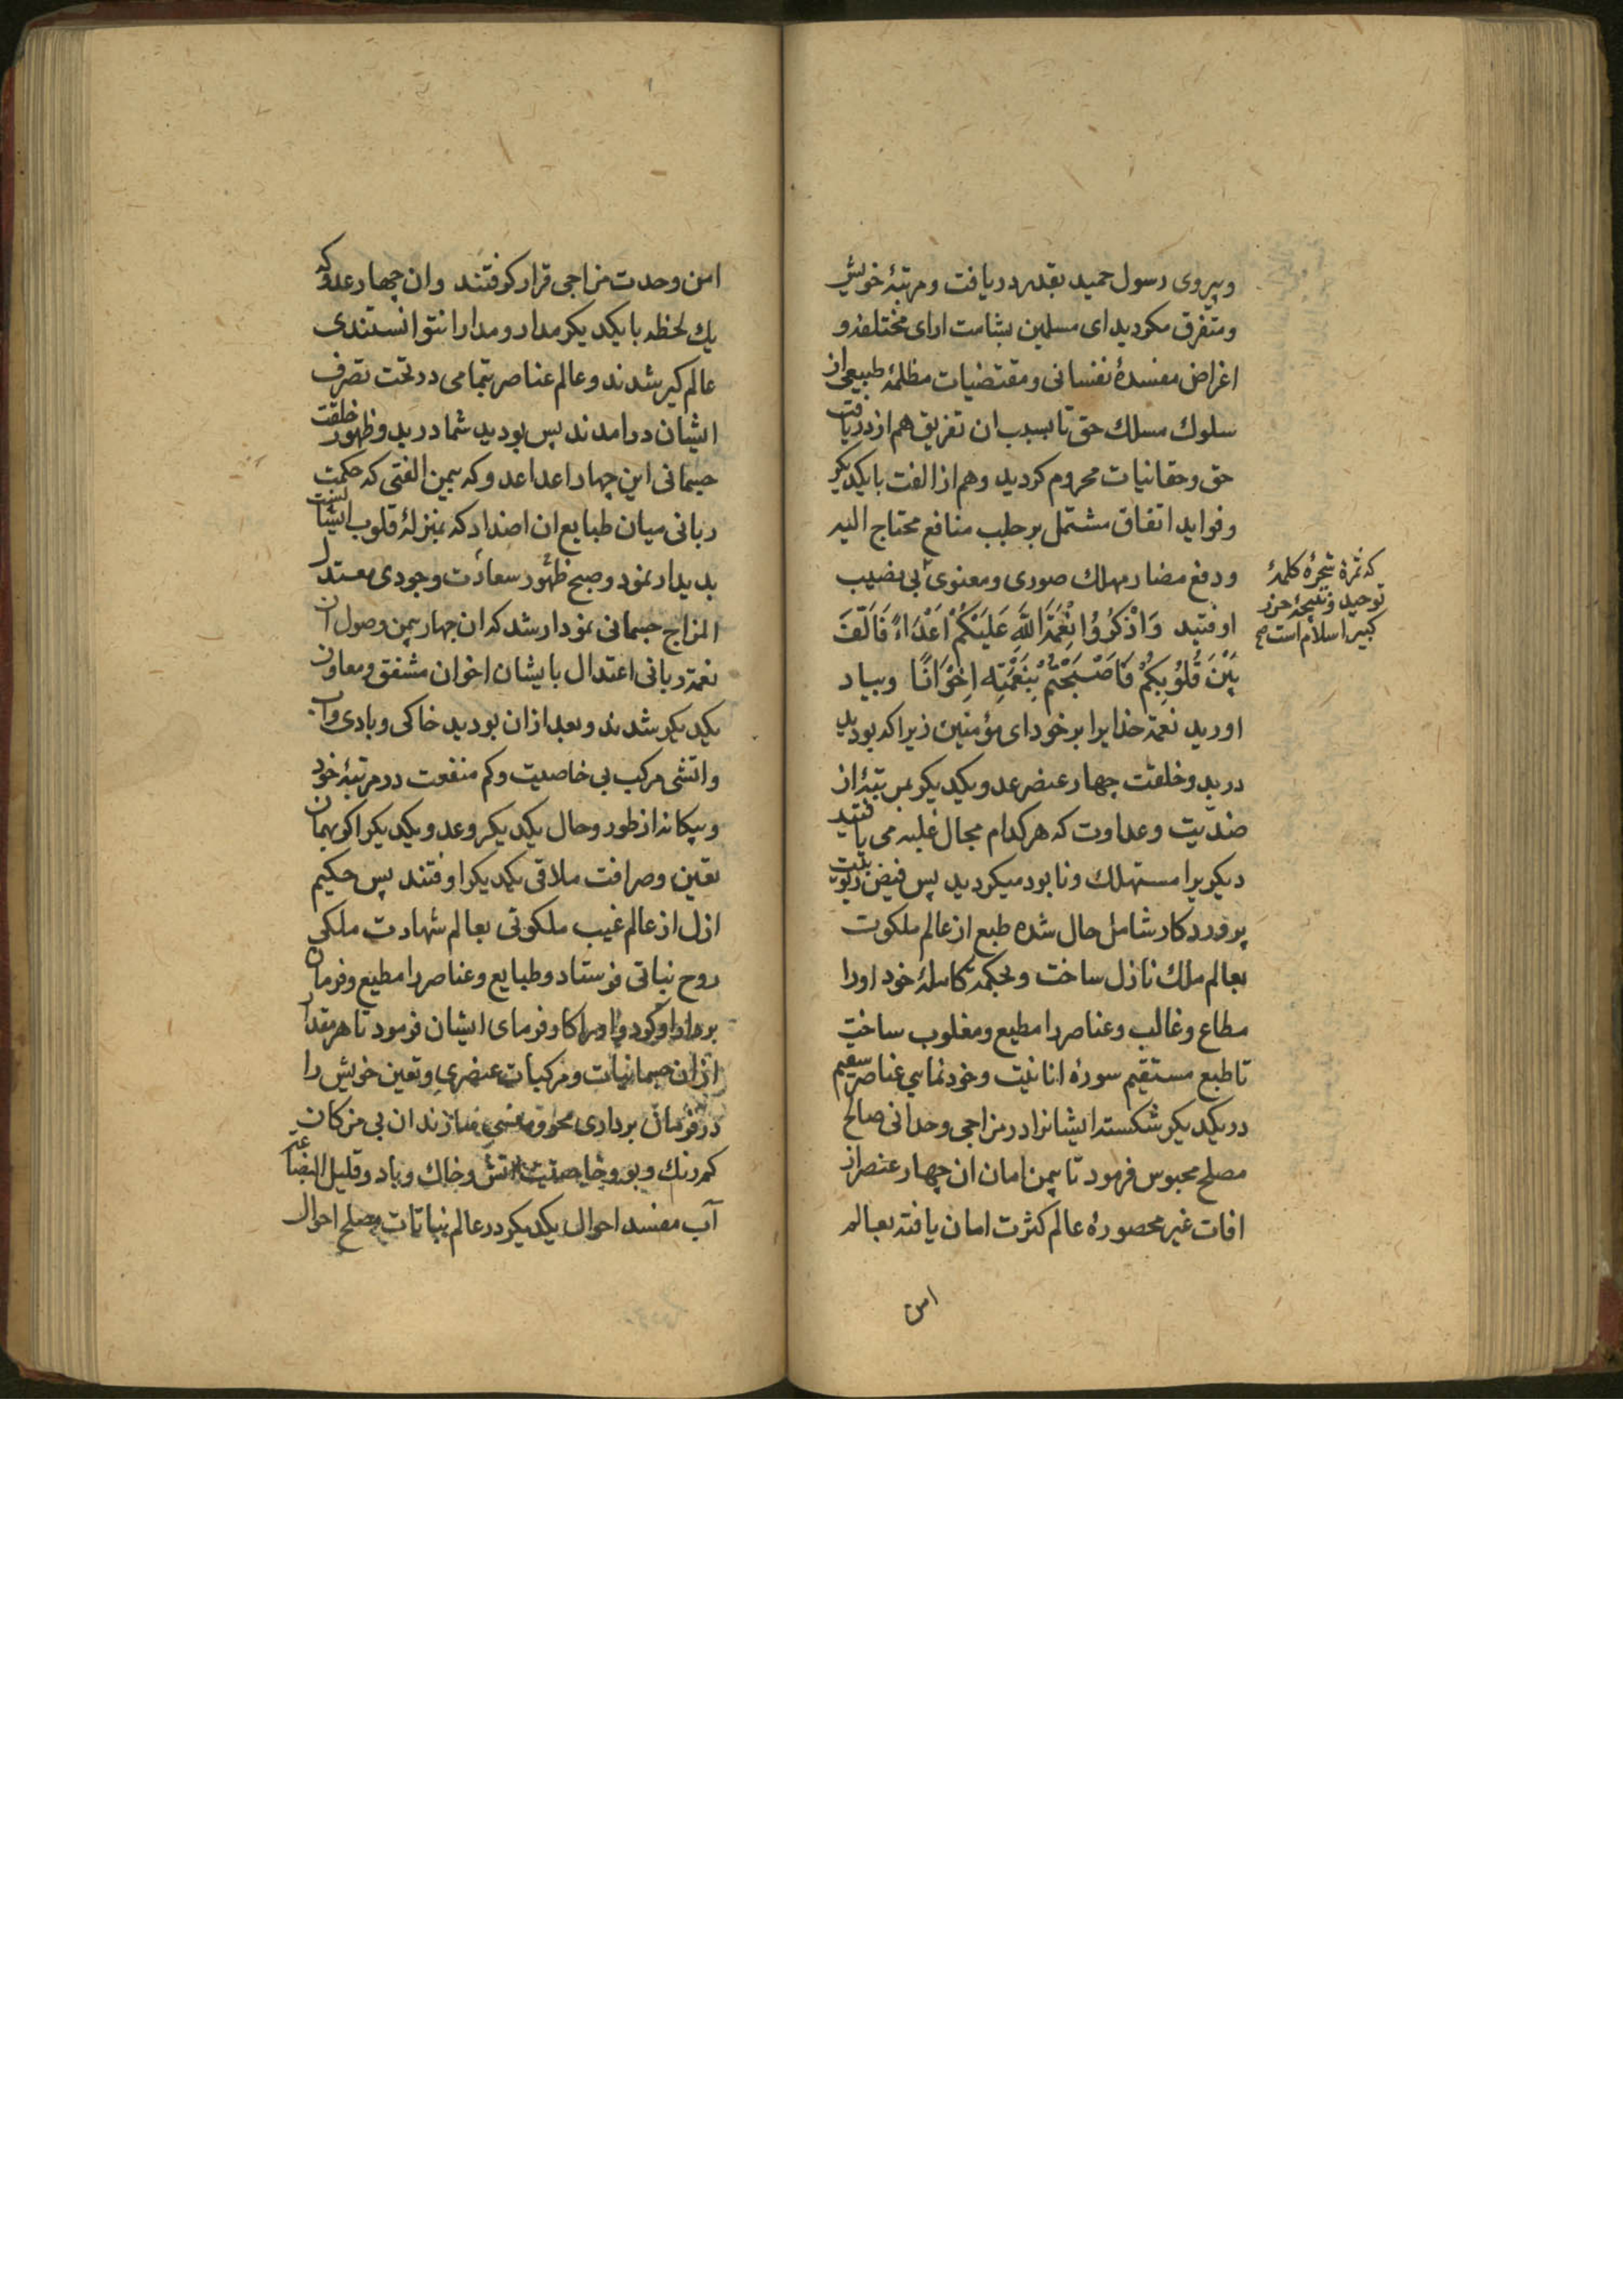 و پیروی رسول حمید بقدر دریافت و مرتبۀ خویش
و متفرق مکردید ای مسلمین بشامت ارای مختلفه و
اغراض مفسدۀ نفسانی و مقتضیات مظلمۀ طبیعی از
سلوك مسلك حق تا بسبب ان تفریق هم از دریافت
حق و حقانیات محروم کردید و هم از الفت با یکدیکر
و فواید اتفاق مشتمل بر جلب منافع محتاج الیه
و دفع مضار مهلك صوری و معنوی بی نصیب
که ثمرۀ شجرۀ کلمۀ
توحید و نتیجۀ حرز
کبیر اسلام است صح
اوفتید وَاذْكُرُوا نِعْمَةَ اللَّهِ عَلَيْكُمْ اَعْدَاءً فَاَلَّفَ
بَيْنَ قُلُوبِكُمْ فَاَصْبَحْتُمْ بِنِعْمَتِه اِخْوَانًا و بیاد
اورید نعمة خدایرا بر خود ای مؤمنین زیرا که بودید
در بدو خلقت چهار عنصر عدو یکدیکر بمرتبۀ از
ضدّیت و عداوت که هر کدام مجال غلبه می یافتید
دیکریرا مستهلك و نابود میکردید پس فیض ربوبیت
پروردکار شامل حال شده طبع از عالم ملکوت
بعالم ملك نازل ساخت و بحکمة کاملۀ خود اورا
مطاع و غالب و عناصر را مطیع و مغلوب ساخت
تا طبع مستقیم سورۀ انانیت و خودنمایی عناصر سقیم
در یکدیکر شکسته ایشانرا در مزاجی وحدانی صالح
مصلح محبوس فرمود تا بیمن امان ان چهار عنصر از
افات غیر محصورۀ عالم کثرت امان یافته بعالم
امن
امن وحدت مزاجی قرار کرفتند و ان چهار عدو که
یك لحظه با یکدیکر مدار و مدارا نتوانستندی
عالم کیر شدند و عالم عناصر بتمامی در تحت تصرف
ایشان درامدند پس بودید شما در بدو ظهور خلقت
جسمانی این چهار اعدا عدو که بیمن الفتی که حکمت
ربانی میان طبایع ان اضداد که بمنزلۀ قلوب ایشانست
بدیدار نمود و صبح ظهور سعادت وجودی معتدل
المزاج جسمانی نمودار شد که ان چهار بیمن وصول ان
نعمة ربانی اعتدال با یشان اخوان مشفق و معاون
یکدیکر شدند و بعد از ان بودید خاکی و بادی و اب
و اتشی مرکب بی خاصیت و کم منفعت در مرتبۀ خود
و بیکانه از طور و حال یکدیکر و عدو یکدیکر اکر بهمان
تعین و صرافت ملاقی یکدیکر اوفتند پس حکیم
ازل از عالم غیب ملکوتی بعالم شهادت ملکی
روح نباتی فرستاد و طبایع و عناصر را مطیع و فرمان
بردار او کرد و اورا کارفرمای ایشان فرمود تا هر مقدار
از ان جسمانیات و مرکبات عنصری و تعین خویش را
در فرمان برداری محو و منسی سازند ان بی مزکان
کم رنك و بو و خاصیت اتش و خاك و باد و قلیل البضاعة
آب مفسد احوال یکدیکر در عالم نباتات مصلح احوال